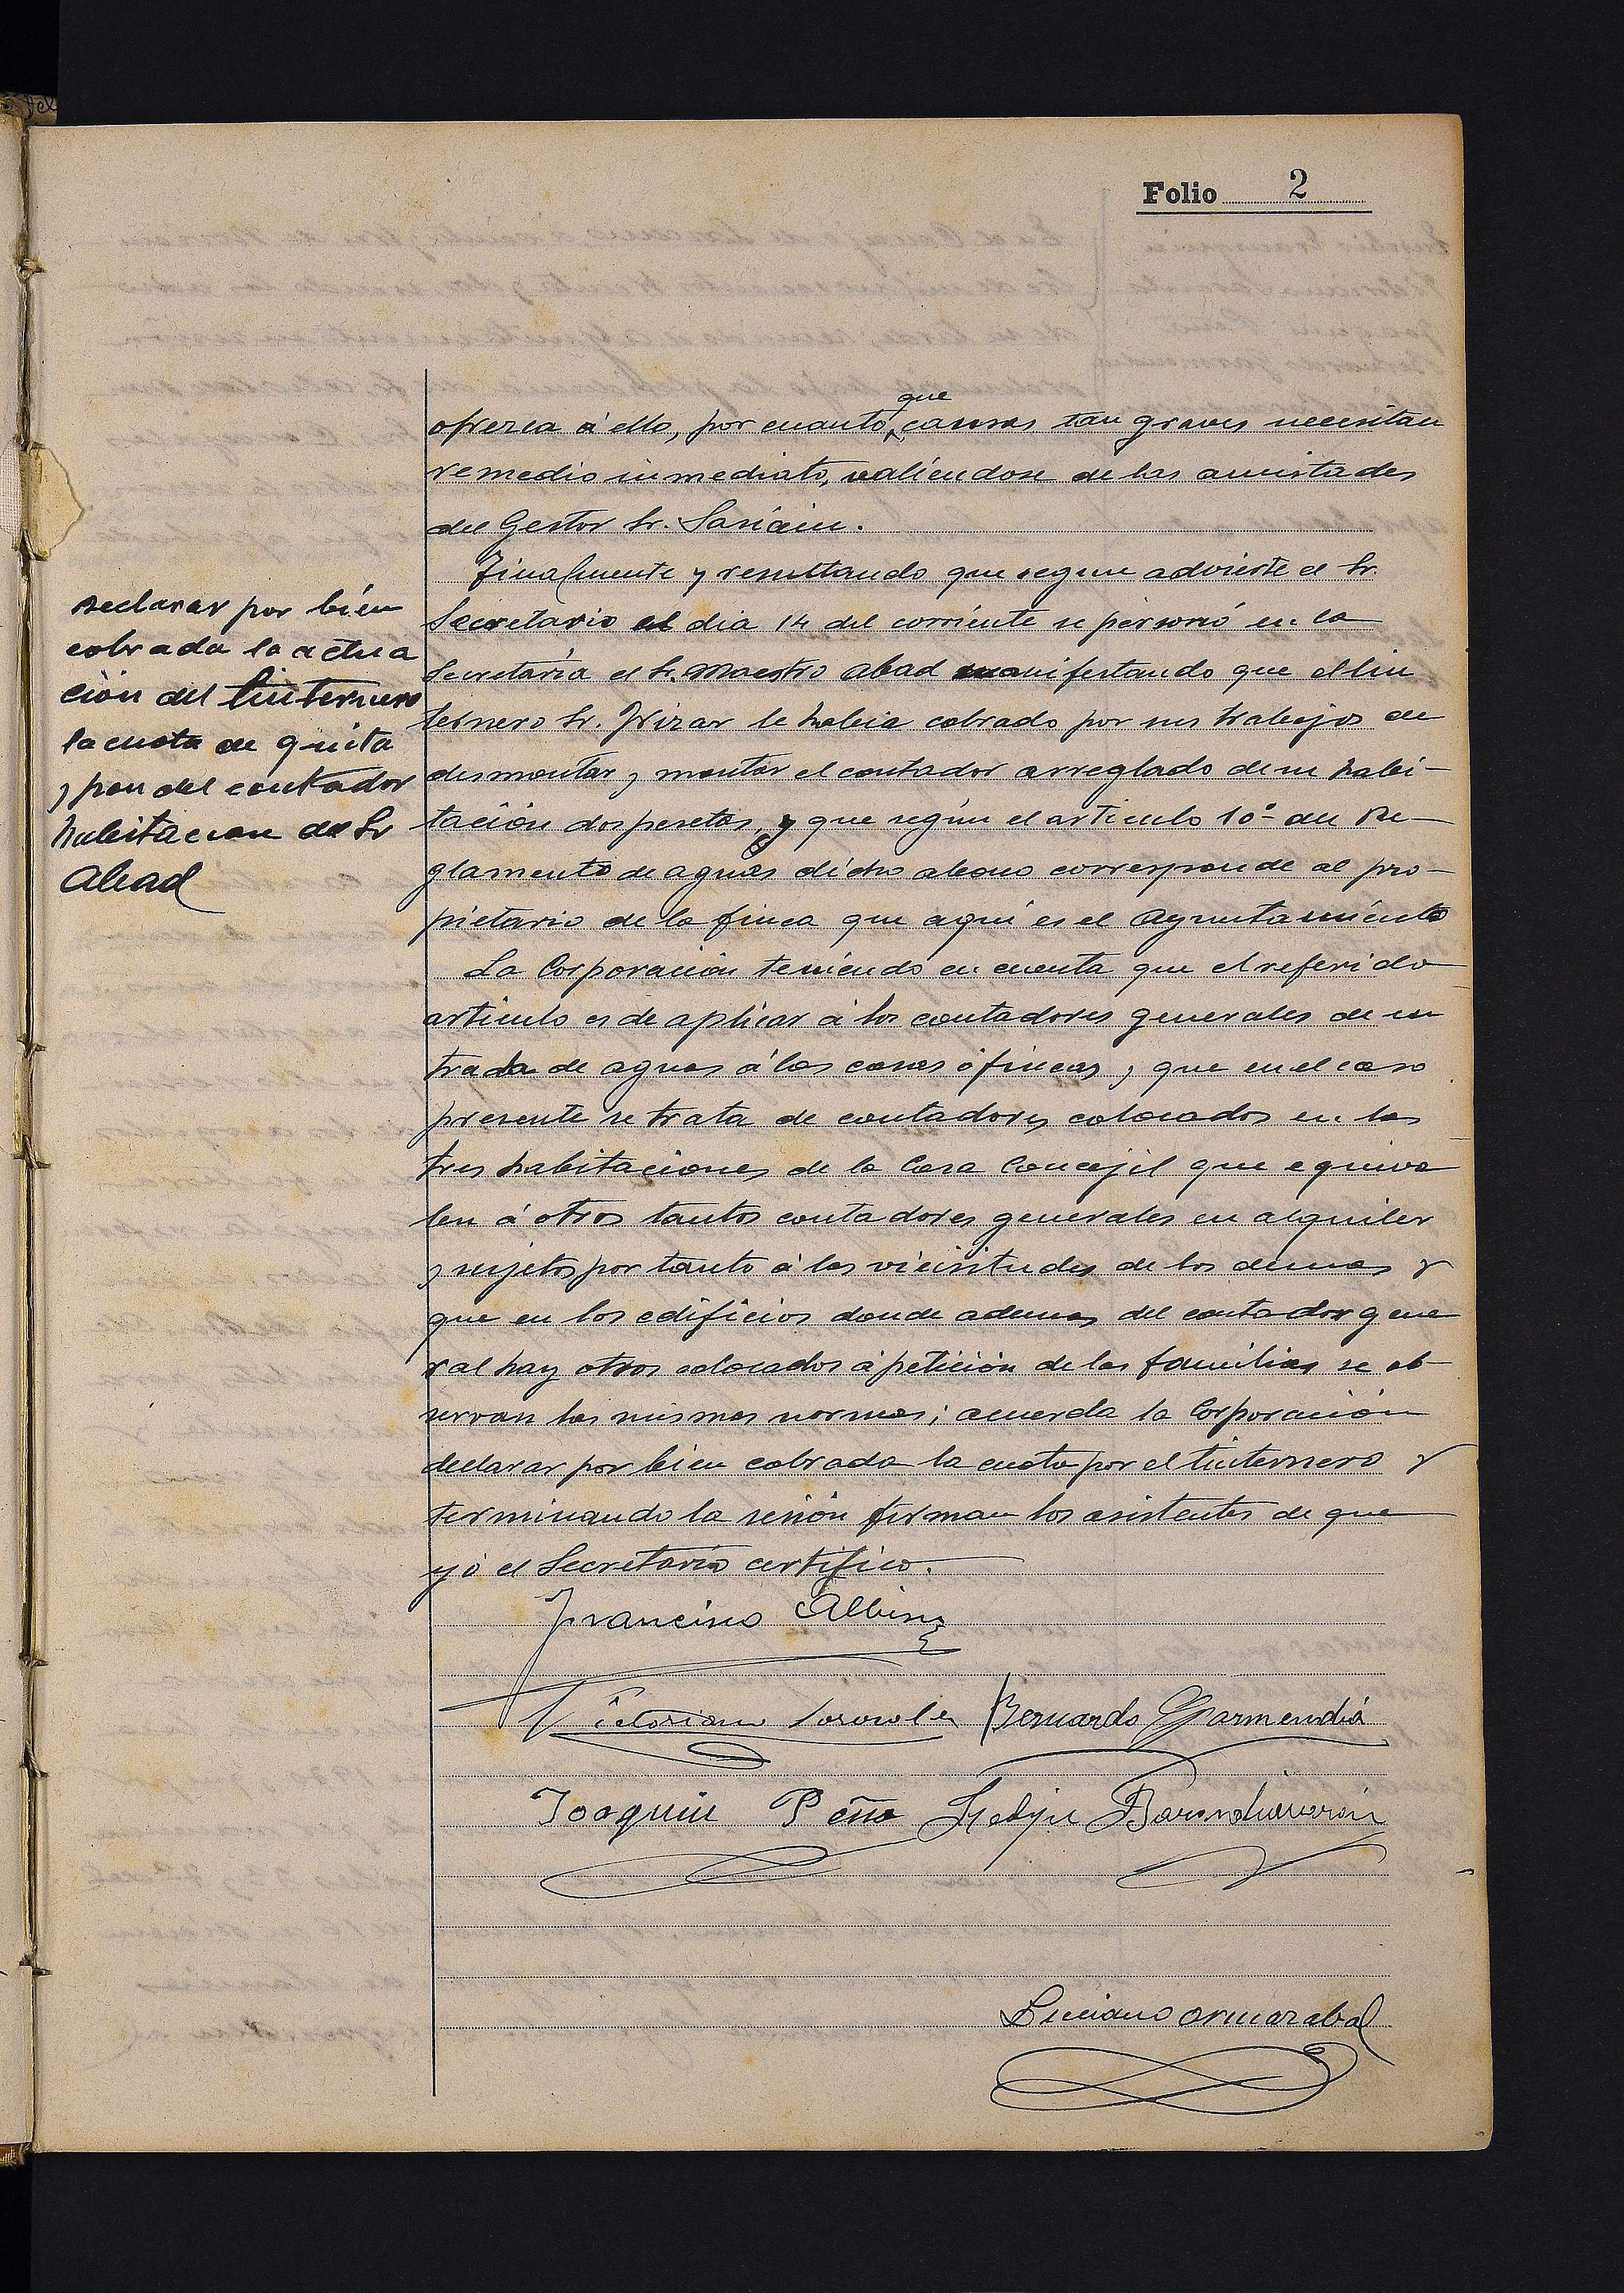 Folio 2
que
ofrezca á ello, por cuanto casos tan graves necesitan
remedio inmediato, valiéndose de las amistades
del Gestor Sr. Sasiain.
Finalmente y resultando que segun advierte el Sr.
Secretario el dia 14 del corriente se personó en la
Secretaría el Sr. Maestro Abad manifestando que el lin
ternero Sr. Irizar le habia cobrado por sus trabajos de
desmontar y montar el contador arreglado de su habi-
tación dos pesetas, y que según el articulo 10º del Re-
glamento de aguas dicho abono corresponde al pro-
pietario de la finca que aquí es el Ayuntamiento
La Corporación teniendo en cuenta que el referido
articulo es de aplicar á los contadores generales de en
trada de aguas á las casas ó fincas, y que en el caso
presente se trata de contadores colocados en las
tres habitaciones de la Casa Concejil que equiva
len á otros tantos contadores generales en alquiler
y sujetos por tanto á las vicisitudes de los demas y
que en los edificios donde ademas del contador gene
ral hay otros colocados á petición de las familias se ob-
servan las mismas normas; acuerda la Corporación
declarar por bien cobrada la cuota por el linternero y
terminando la sesión firman los asistentes de que
yó el Secretario certifico.
Declarar por bién
cobrada la actua
ción del linternero
la cuota de quita
y pon del contador
habitacion del Sr
Abad
Francisco Albisu
Victoriano Bernardo Garmendia
Joaquin Peña Felipe Barandiaran
Luciano Ormazabal